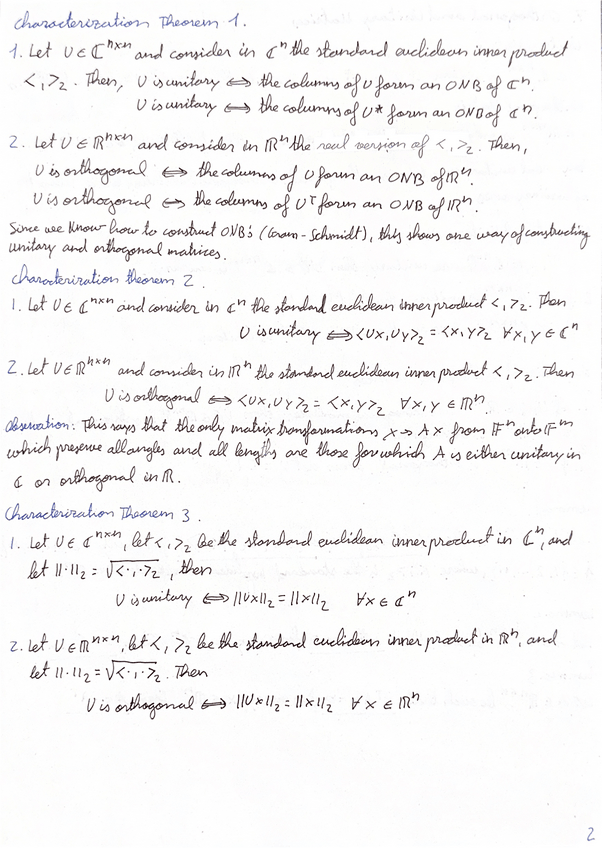 Characterization Theorem 1.
1. Let U ∈ ℂⁿˣⁿ and consider in ℂⁿ the standard euclidean inner product
<,>₂. Then, U is unitary ⟺ the columns of U form an ONB of ℂⁿ.
U is unitary ⟺ the columns of U* form an ONB of ℂⁿ.
2. Let U ∈ ℝⁿˣⁿ and consider in ℝⁿ the real version of <,>₂. Then,
U is orthogonal ⟺ the columns of U form an ONB of ℝⁿ.
U is orthogonal ⟺ the columns of Uᵀ form an ONB of ℝⁿ.
Since we know how to construct ONB's (Gram-Schmidt), this shows one way of constructing
unitary and orthogonal matrices.
Characterization theorem 2.
1. Let U ∈ ℂⁿˣⁿ and consider in ℂⁿ the standard euclidean inner product <,>₂. Then
U is unitary ⟺ <Ux,Uy>₂ = <x,y>₂ ∀x,y ∈ ℂⁿ
2. Let U ∈ ℝⁿˣⁿ and consider in ℝⁿ the standard euclidean inner product <,>₂. Then
U is orthogonal ⟺ <Ux,Uy>₂ = <x,y>₂ ∀x,y ∈ ℝⁿ.
Observation: This says that the only matrix transformations x → Ax from 𝔽ⁿ onto 𝔽ᵐ
which preserve all angles and all lengths are those for which A is either unitary in
ℂ or orthogonal in ℝ.
Characterization Theorem 3.
1. Let U ∈ ℂⁿˣⁿ, let <,>₂ be the standard euclidean inner product in ℂⁿ, and
let ||·||₂ = √<·,·>₂, then
U is unitary ⟺ ||Ux||₂ = ||x||₂ ∀x ∈ ℂⁿ
2. Let U ∈ ℝⁿˣⁿ, let <,>₂ be the standard euclidean inner product in ℝⁿ, and
let ||·||₂ = √<·,·>₂. Then
U is orthogonal ⟺ ||Ux||₂ = ||x||₂ ∀x ∈ ℝⁿ
2